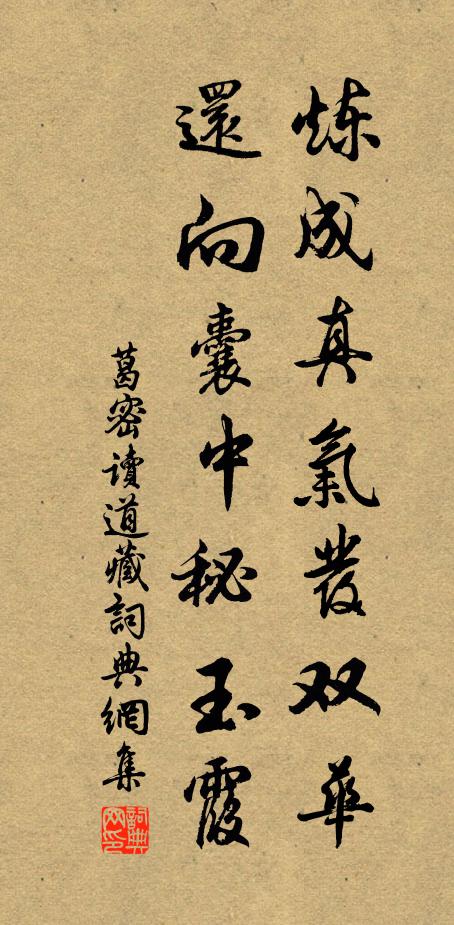 炼成真氣發双華
還向囊中秘玉霞
葛密讀道藏詞典網集
詞典網印